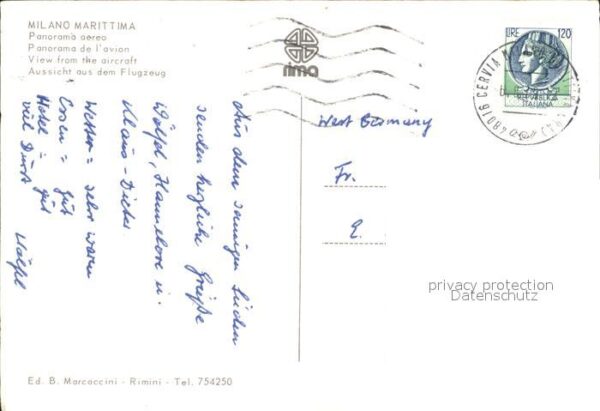 MILANO MARITTIMA
Panorama aereo
Panorama de l'avion
View from the aircraft
Aussicht aus dem Flugzeug
rima
LIRE 120
REPUBBLICA
ITALIANA
48016 CERVIA
West Germany
Fr.
E.
Aus dem sonnigen Süden
senden herzliche Grüße
Wölfel, Hannelore u.
Klaus-Dieter
Wetter = sehr warm
Essen = gut
Hotel = gut
viel Durst Wölfel
privacy protection
Datenschutz
Ed. B. Marcaccini - Rimini - Tel. 754250